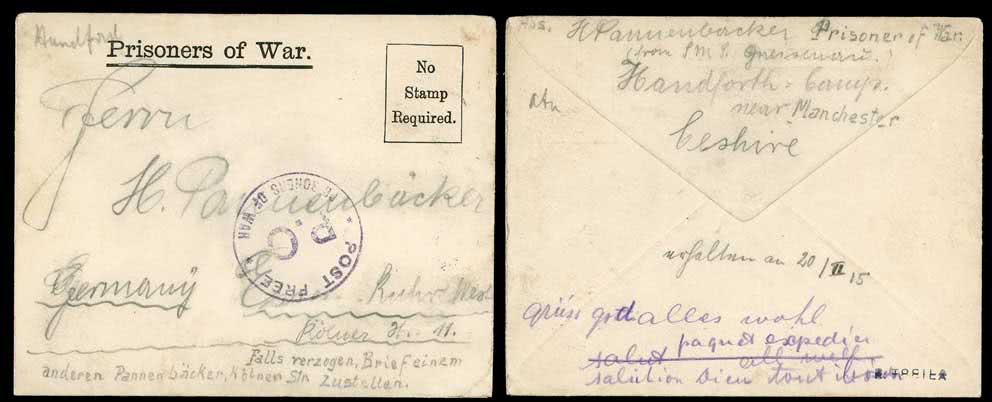 Handforth
Prisoners of War.
No
Stamp
Required.
Herrn
H. Pannenbäcker
POST FREE
PRISONERS OF WAR
P.C.
Germany
Ruhr West
Kölner St. 11.
Falls verzogen, Brief einem
anderen Pannenbäcker, Kölner Str. Zustellen.
Abs. H Pannenbäcker Prisoner of War.
(from S.M.S. Gneisenau.)
Handforth-Camp.
near Manchester
Ceshire
erhalten an 20/II 15
grüss gott alles wohl
paquet expedier
salut all well